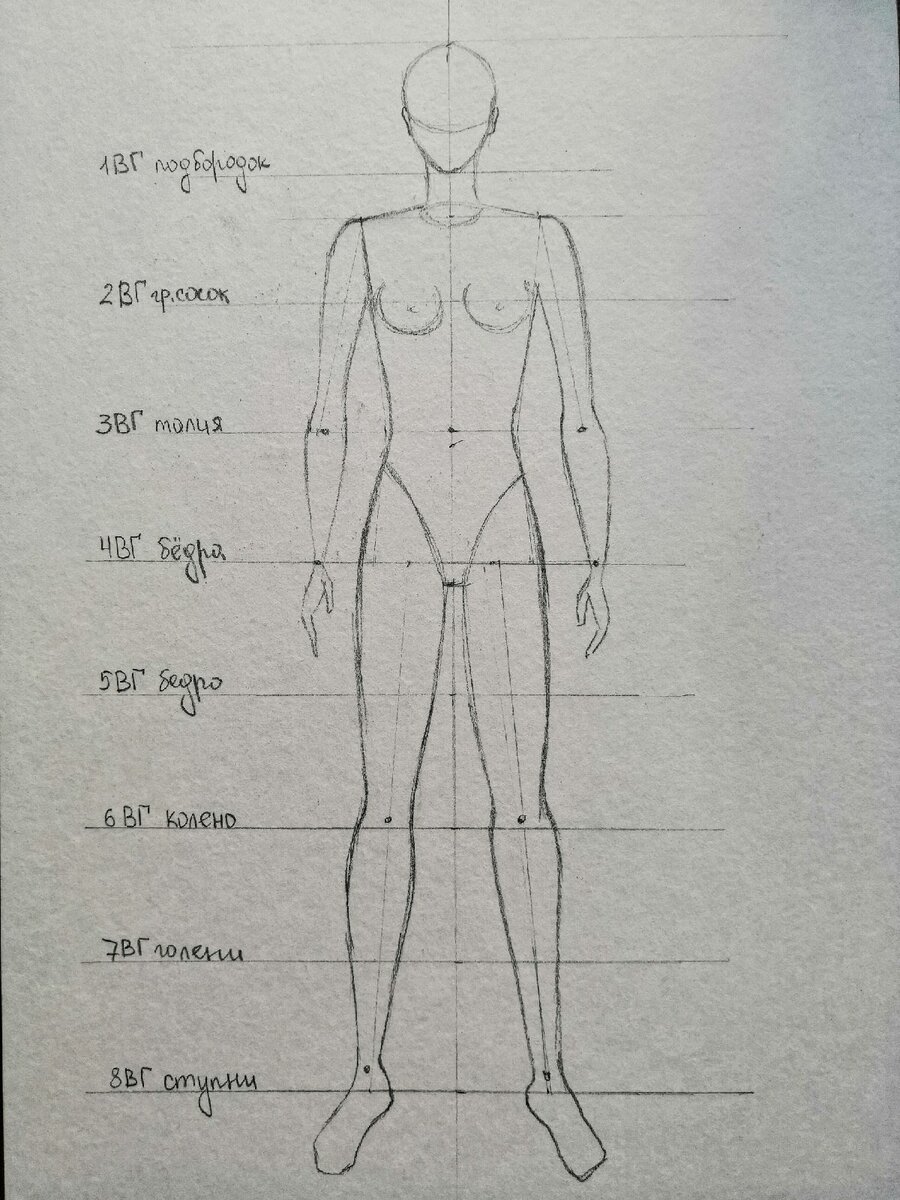 1ВГ подбородок
2ВГ гр.сосок
3ВГ талия
4ВГ бёдра
5ВГ бедро
6ВГ колено
7ВГ голени
8ВГ ступни